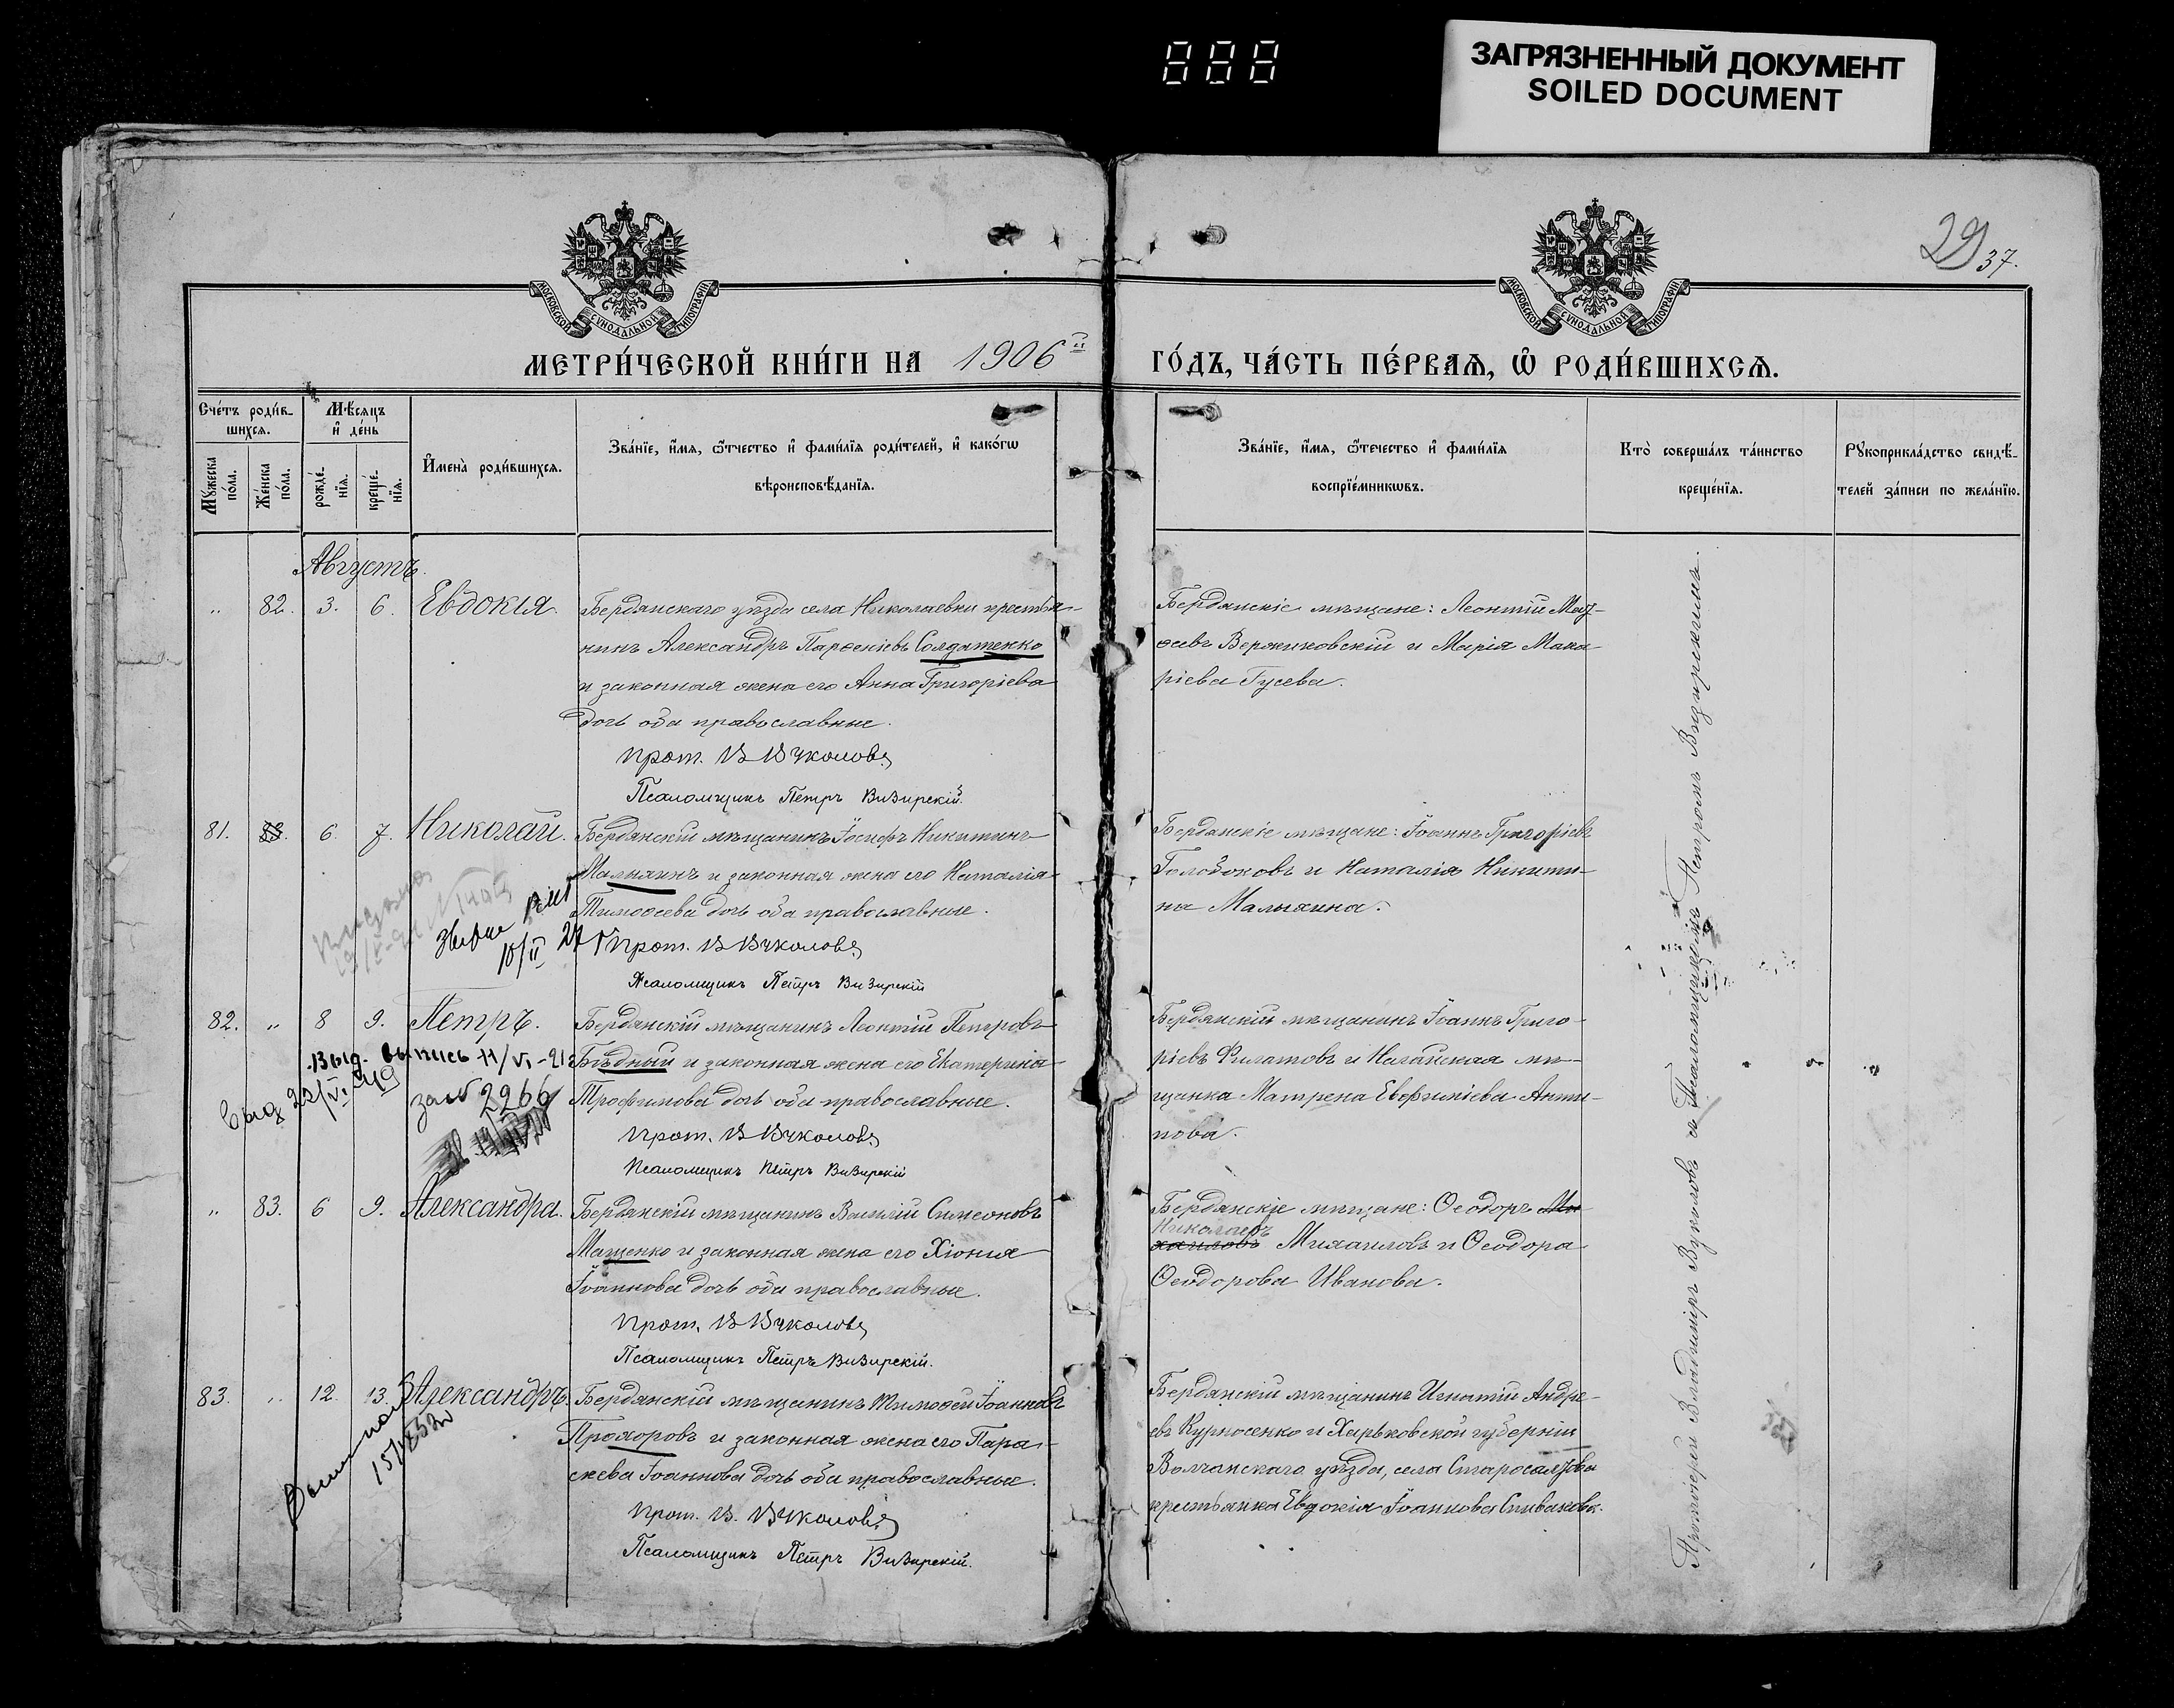 888
ЗАГРЯЗНЕННЫЙ ДОКУМЕНТ
SOILED DOCUMENT
29
37.
МОСКОВСКОЙ СѴНОДАЛЬНОЙ ТИПОГРАФІИ
МОСКОВСКОЙ СѴНОДАЛЬНОЙ ТИПОГРАФІИ
МЕТРИ́ЧЕСКОЙ КНИ́ГИ НА 1906й ГО́ДЪ, ЧА́СТЬ ПЕ́РВАѦ, Ѡ РОДИ́ВШИХСѦ.
Сче́тъ роди́в-
шихсѧ.
Мѣ́сѧцъ
и де́нь
Мꙋ́жеска
по́ла.
Же́нска
по́ла.
рожде́-
нїѧ.
креще́-
нїѧ.
И҆мена̀ роди́вшихсѧ.
Зва́нїе, и҆́мѧ, ѻ҆́тчество и҆ фами́лїѧ роди́телей, и҆ како́гѡ
вѣроисповѣ́данїѧ.
Зва́нїе, и҆́мѧ, ѻ҆́течество и҆ фами́лїѧ
воспрїе́мникѡвъ.
Кто̀ соверша́лъ та́инство
креще́нїѧ.
Рꙋкоприкла́дство свидѣ́-
телей за́писи по жела́нїю.
Августъ.
" 82. 3. 6. Евдокія.
Бердянскаго уѣзда села Николаевки крестья-
нинъ Александръ Парѳеніевъ Солдатенко
и законная жена его Анна Григоріева
дочь оба православные.
Прот. В Вуколовъ
Псаломщикъ Петръ Визирскій.
Бердянскіе мѣщане: Леонтій
Вержиковскій и Марія Мака-
ріева Гусева.
81. 83. 6. 7. Николай.
Бердянскій мѣщанинъ Іосифъ Никитинъ
Малыхинъ и законная жена его Наталія
Тимоѳеева дочь оба православные.
Прот. В Вуколовъ
Псаломщикъ Петръ Визирскій
10/II 27
Бердянскіе мѣщане: Іоаннъ Григоріевъ
Голобоковъ и Наталія Никити-
на Малыхина.
82. " 8 9. Петръ.
Выд. выпись 11/VI-21
Выд 22/VI
2266
Бердянскій мѣщанинъ Леонтій Петровъ
Бѣдный и законная жена его Екатерина
Трофимова дочь оба православные.
Прот. В Вуколовъ
Псаломщикъ Петръ Визирскій
Бердянскій мѣщанинъ Іоаннъ Григо-
ріевъ Филатовъ и Ногайская мѣ-
щанка Матрена Евфиміева Анти-
пова.
" 83. 6 9. Александра.
Бердянскій мѣщанинъ Василій Симеоновъ
Мащенко и законная жена его Хіонія
Іоаннова дочь оба православные.
Прот. В Вуколовъ
Псаломщикъ Петръ Визирскій.
Бердянскіе мѣщане: Ѳеодоръ Ми
Николаевъ
хаиловъ Михаиловъ и Ѳеодора
Ѳеодорова Иванова.
83. " 12. 13. Александръ.
Бердянскій мѣщанинъ Тимоѳей Іоанновъ
Прохоровъ и законная жена его Пара-
скева Іоаннова дочь оба православные.
Прот. В. Вуколовъ
Псаломщикъ Петръ Визирскій.
Бердянскій мѣщанинъ Игнатій Андре-
евъ Курносенко и Харьковской губерніи
Волчанскаго уѣзда, села
крестьянка Евдокія Іоаннова
Протоіерей Владиміръ Вуколовъ съ Псаломщикомъ Петромъ Визирскимъ.